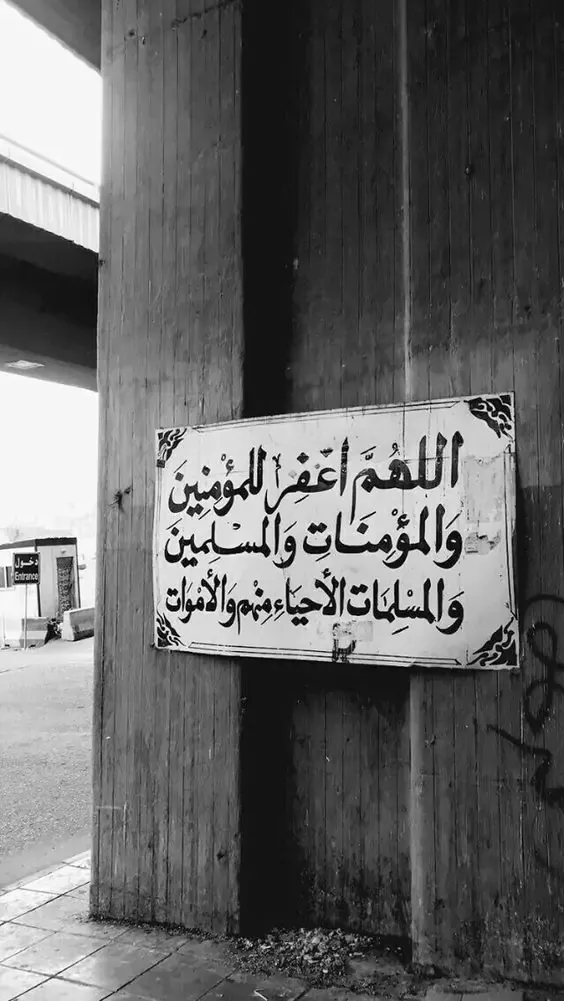 اللهُمَّ اغْفِرْ للمؤْمِنِين
وَالمؤْمِنَاتِ وَالمسْلِمِين
وَالمسْلِمَاتِ الأحيَاءِ مِنْهُم وَالأمْوَات
دخول
Entrance